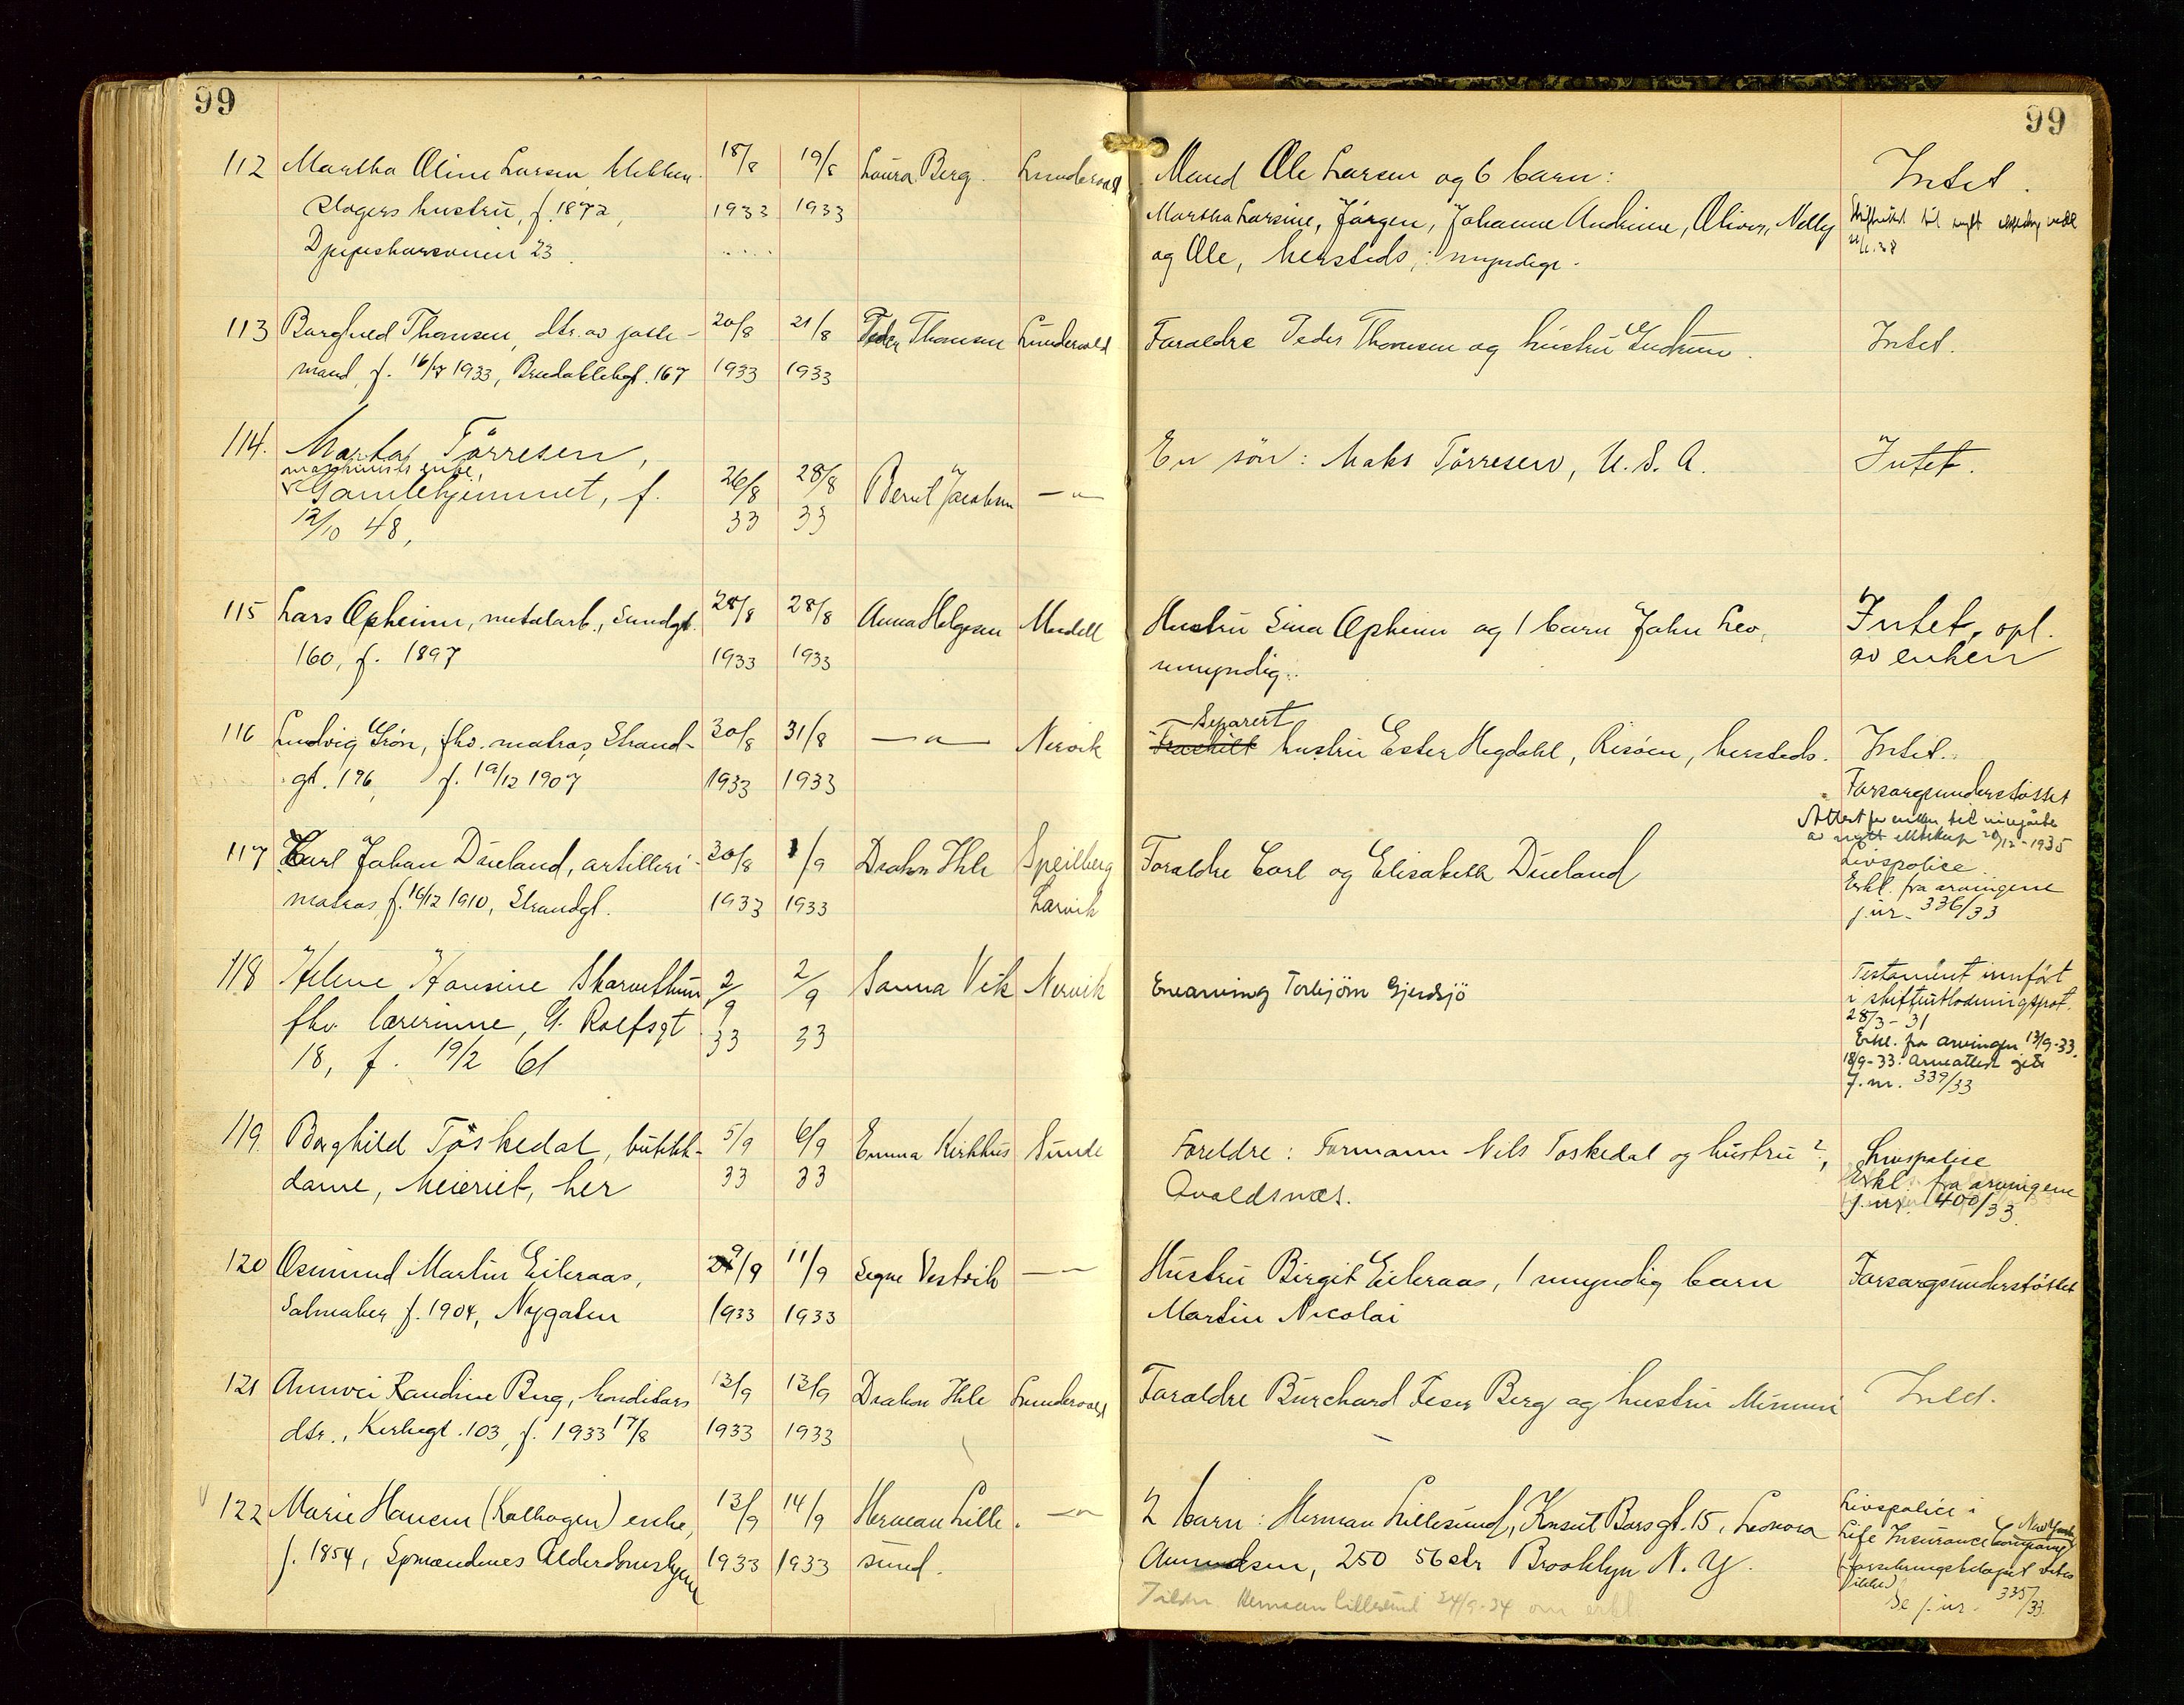 99
99
112 Martha Oline Larsen, blikken- 18/8 19/8 Laura Berg. Lundevold Mand Ole Larsen og 6 barn: Intet.
slagers hustru, f. 1872, 1933 1933 Martha Larsine, Jørgen, Johanne Andrine, Oliver, Nelly
23 og Ole, hersteds, myndige.
113 Borghild Thomsen, dtr. av 20/8 21/8 Peder Thomsen Lundevold Foreldre Peder Thomsen og hustru Gudrun. Intet.
mand, f. 16/7 1933, 167 1933 1933
114. Marta Tørresen, En søn: Maks Tørresen, U.S.A. Intet.
maskinists enke,
Gamlehjemmet, f. 26/8 28/8 Berit Jacobsen —"—
12/10 48, 33 33
115 Lars Opheim, metalarb., Sundgt. 28/8 28/8 Anna Helgesen Hustru Sina Opheim og 1 barn John Leo, Intet, opl.
160, f. 1897 1933 1933 umyndig. av enken
Separert
116 Ludvig Grøn, fhv. matros, Strand- 30/8 31/8 —"— Nervik Fraskilt hustru Ester Hegdahl, Risøen, hersteds. Intet.
gt. 196, f. 19/12 1907 1933 1933 Forsorgsunderstøttet
Attest for enken til inngåelse
av nytt ekteskap 20/12-1935
117 Carl Johan Dueland, artilleri- 30/8 1/9 Diakon Ihle Speilberg Foreldre Carl og Elisabeth Dueland Livspolice.
matros, f. 16/12 1910, Strandgt. 1933 1933 Larvik Erkl. fra arvingene
j.nr. 336/33
118 Helene Hansine 2/9 2/9 Sanna Vik Nervik Enearving Torbjörn Gjerdsjö Testament innført
fhv. lærerinne, G. Rolfsgt 33 33 i skifteutlodningsprot.
18, f. 19/2 61 28/3-31
Erkl. fra arvingen 13/9-33.
18/9-33: Arveattest
J.nr. 339/33
119. Borghild Toskedal, butikk- 5/9 6/9 Emma Kirkhus Sunde Foreldre: Formann Nils Toskedal og hustru ?, Livspolice
dame, Meieriet, her 33 33 Avaldsnes. Erkl. fra arvingene
j.nr. 400/33.
120 Osmund Martin Eikeraas, 9/9 11/9 Signe Vestvik —"— Hustru Birgit Eikeraas, 1 umyndig barn Forsorgsunderstøttet
Salmaker, f. 1904, Nygaten 1933 1933 Martin Nicolai
121 Annvei Randine Berg, konditors 12/9 13/9 Diakon Ihle Lundevold Foreldre Burchard Berg og hustru Minni Intet.
dtr., Kirkegt. 103, f. 1933 17/8 1933 1933
122 Marie Hansen (Kolhagen) enke, 13/9 14/9 Herman Lille- —"— 2 barn: Herman Lillesund, Konsul Barsgt. 15, Leonora Livspolice i New York
f. 1854, Sømændenes Alderdomshjem 1933 1933 sund. Amundsen, 250 56 str Brooklyn N.Y. Life Insurance Company
(forsikringsbeløpet vites
ikke)
Tilskr. Herman Lillesund 24/9-34 om erkl Se j.nr. 335/33